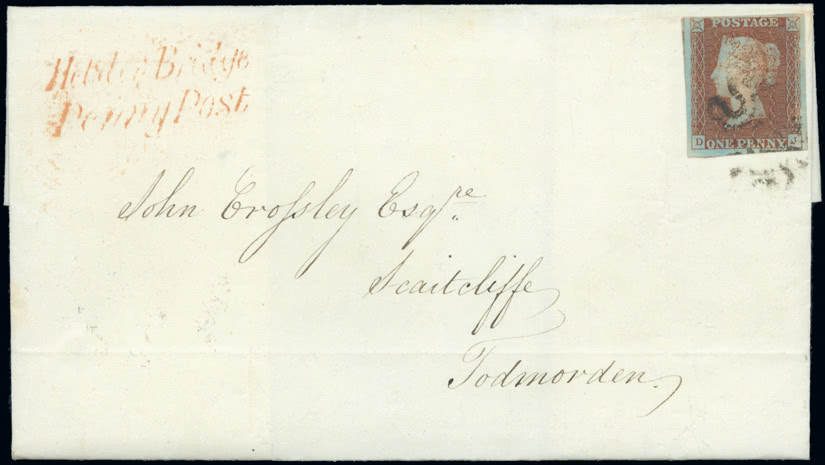 Hebden Bridge
Penny Post
POSTAGE
D ONE PENNY J
John Crossley Esqre.
Scaitcliffe
Todmorden.